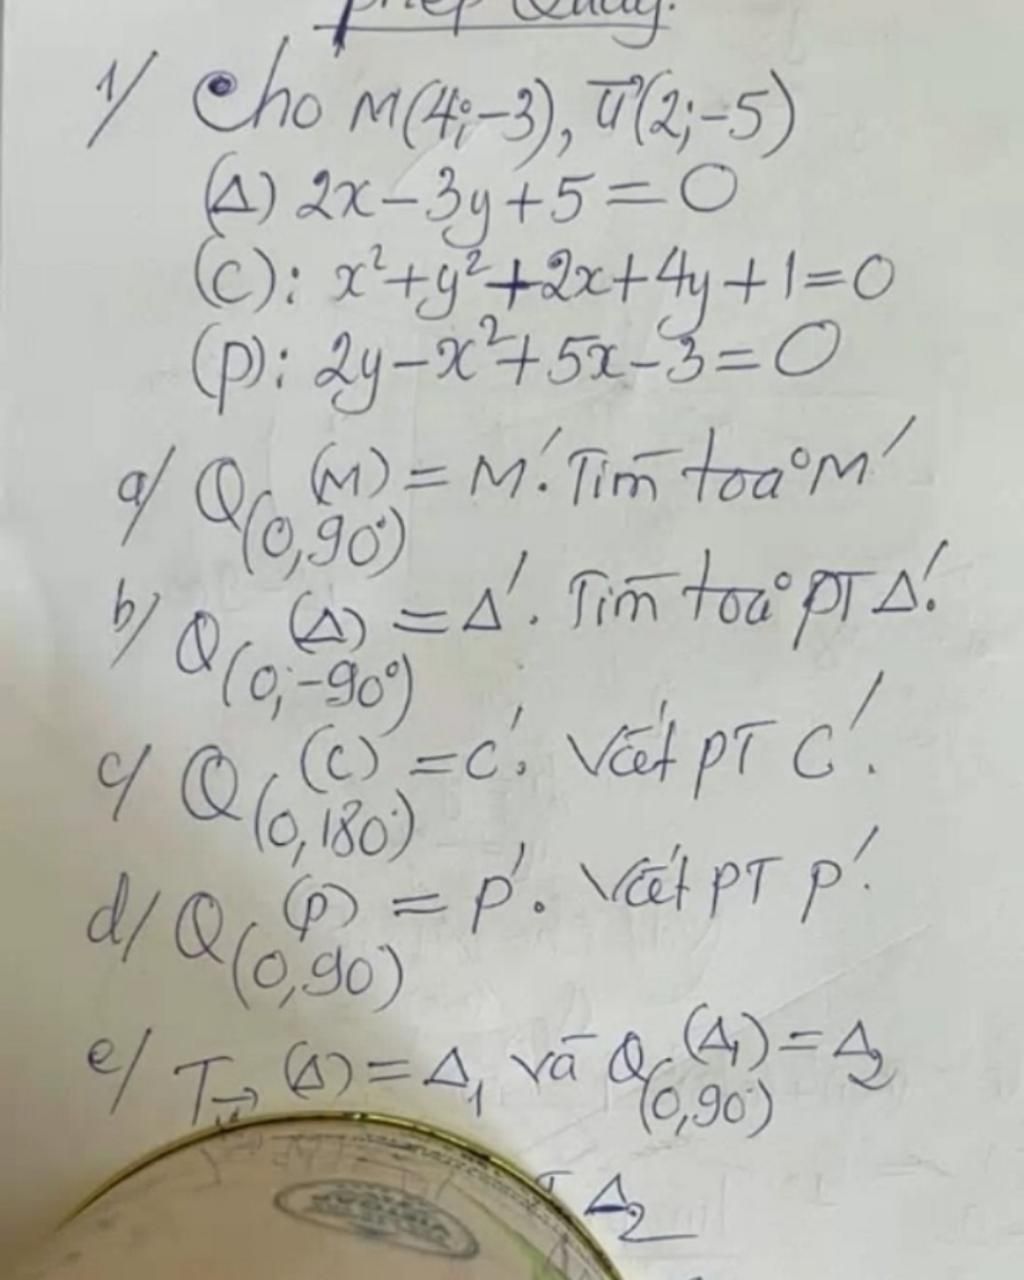 phép Quay.
1/ Cho M(4;-3), u⃗(2;-5)
(Δ) 2x-3y+5=0
(C): x²+y²+2x+4y+1=0
(P): 2y-x²+5x-3=0
a/ Q(O,90°)(M) = M'. Tìm toạ độ M'
b/ Q(O;-90°)(Δ) = Δ'. Tìm toạ độ PT Δ'.
c/ Q(O,180°)(C) = C'. Viết PT C'.
d/ Q(O,90)(P) = P'. Viết PT P'.
e/ T u⃗ (Δ) = Δ₁ và Q(O,90°)(Δ₁) = Δ₂
Δ₂